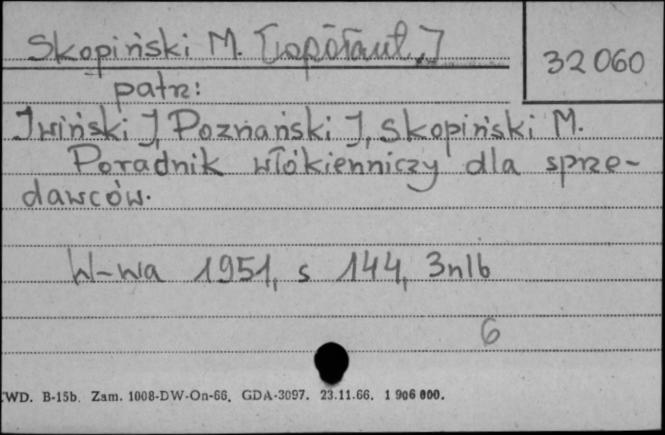 Skopiński M. [współaut.]
32 060
patrz:
Iwiński J, Poznański J, Skopiński M.
Poradnik włókienniczy dla sprze-
dawców.
W-wa 1951, s 144, 3nlb
6
WD. B-15b. Zam. 1008-DW-On-66. GDA-3097. 23.11.66. 1 906 000.